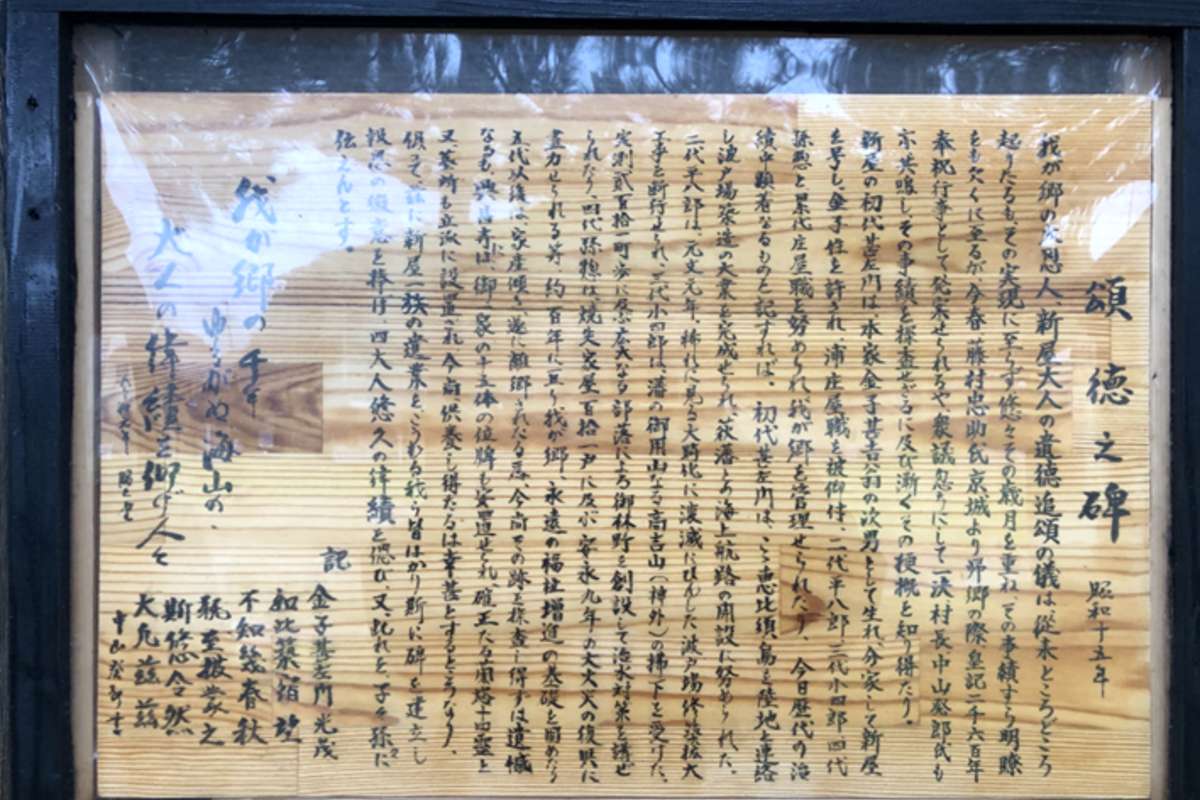 頌徳之碑 昭和十五年
我が郷の大恩人、新屋大人の遺徳追頌の儀は、従来ところどころ
起りたるもその実現に至らず悠々その歳月を重ね、その事績すら明瞭
をも欠くに至るが、今春藤村忠助氏京城より帰郷の際皇記二千六百年
奉祝行事として発案せられるや衆議忽ちにして一決村長中山発郎氏も
亦共鳴しその事績を探査せらるに及び漸くその梗概を知り得たり。
新屋の初代甚左門は、本家金子甚吉翁の次男として生れ、分家して新屋
を号し、金子姓を許され、浦庄屋職を被仰付、二代平八郎三代小四郎四代
孫惣と累代庄屋職を努められ、我が郷を管理せられたり。今日歴代の治
績中顕著なるものを記すれば、初代甚左門は、こゝ恵比須ヶ島を陸地と連絡
し波戸場築造の大業を完成せられ、萩藩との海上航路の開設に努められた。
二代平八郎は、元文元年、稀れに見る大時化に潰滅にひんした波戸場修築拡大
工事を断行せられ、三代小四郎は、藩の御用山なる高吉山(神外)の拂下を受けた。
実測貳百拾一町歩に及ぶ広大なる部落による御林野を創設して治水対策を講ぜ
られたり、四代孫惣は、焼失家屋百拾一戸に及ぶ安永九年の大火災の復興に
盡力せられる等、約一百年に亘り我が郷、永遠の福祉増進の基礎を固めたり
五代以後は、家産傾き、遂に離郷されたる為、今尚その跡を探査し得ずは遺憾
なるも、興昌寺には、御一家の十五体の位牌も安置せられ、確王たる開塔十四霊と
又墓所も立派に設置され今尚供養し得たるは幸甚とするところなり、
倶って、茲に新屋一族の遺業をこうむる我ら皆はかり斯に碑を建立し
報恩の微意を捧げ、四大人悠久の偉績を偲び、又、これを子々孫々に
伝えんとす。
記
我が郷の千年
ゆるがぬ海山の、
大人の偉績を仰げ人々
金子甚左門光茂
如比築宿望
不知幾春秋
甁至披蒙之
斯悠念然
大凡茲茲
中山發郎書